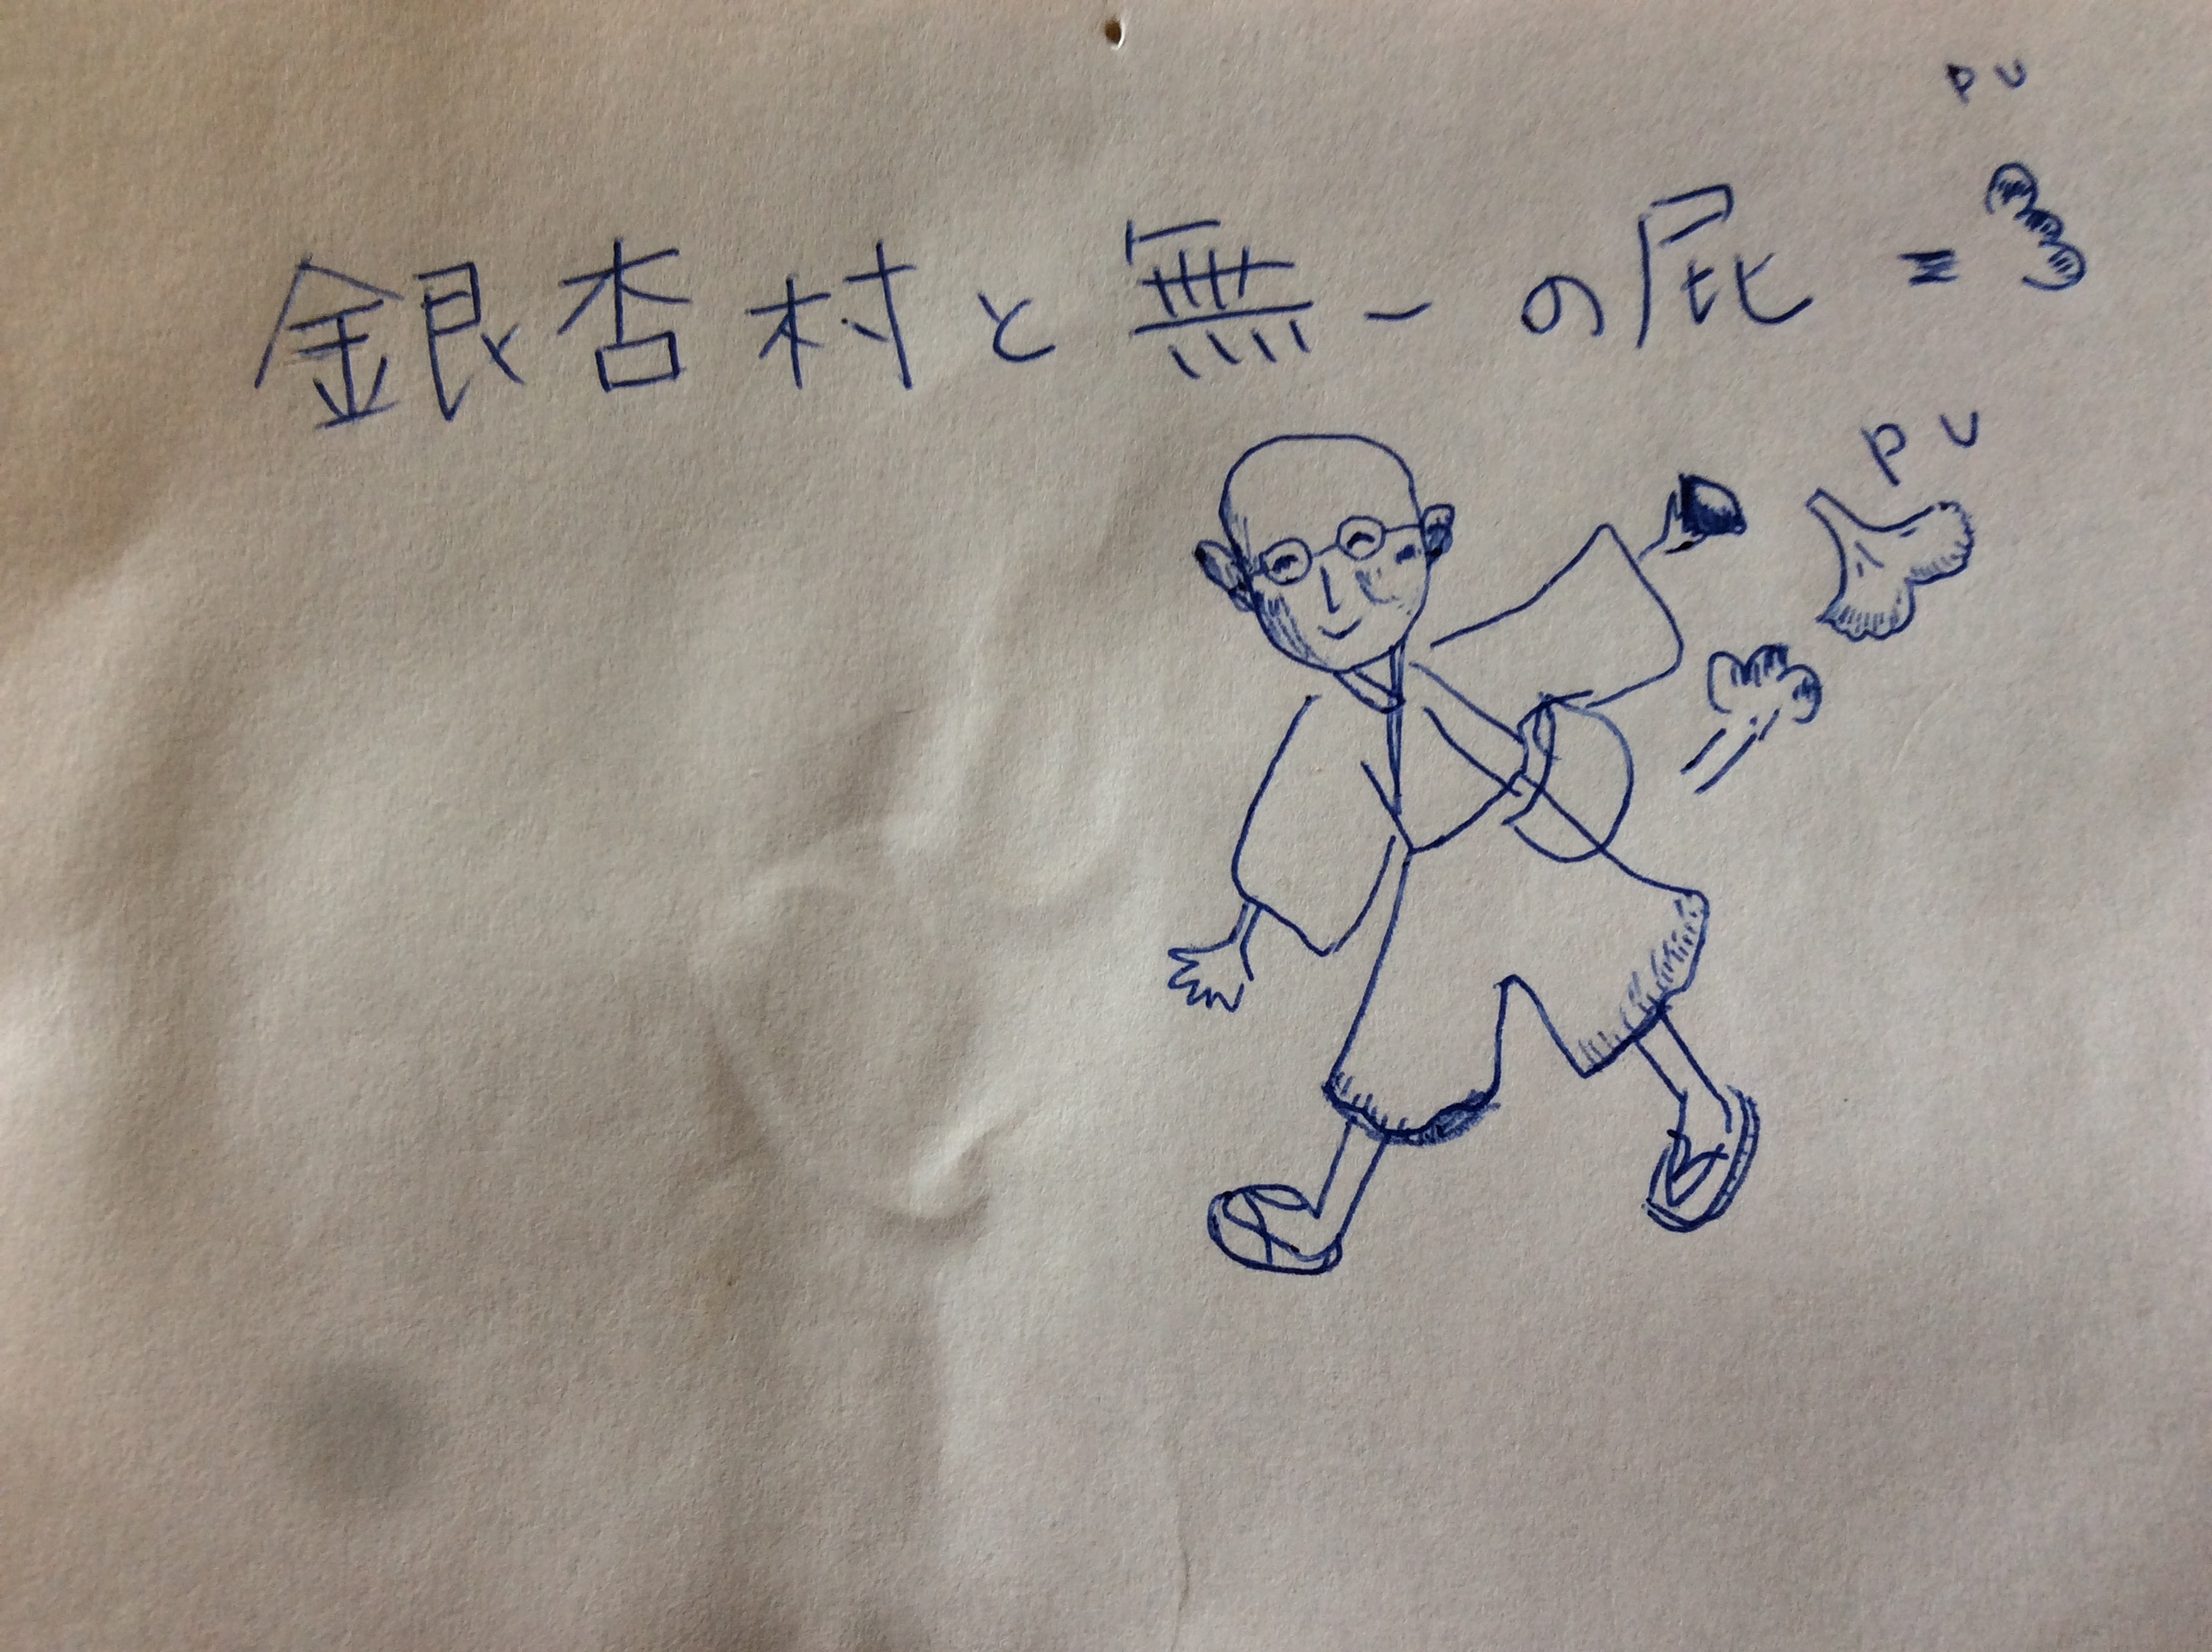 PU
銀杏村と無一の屁=3
PU